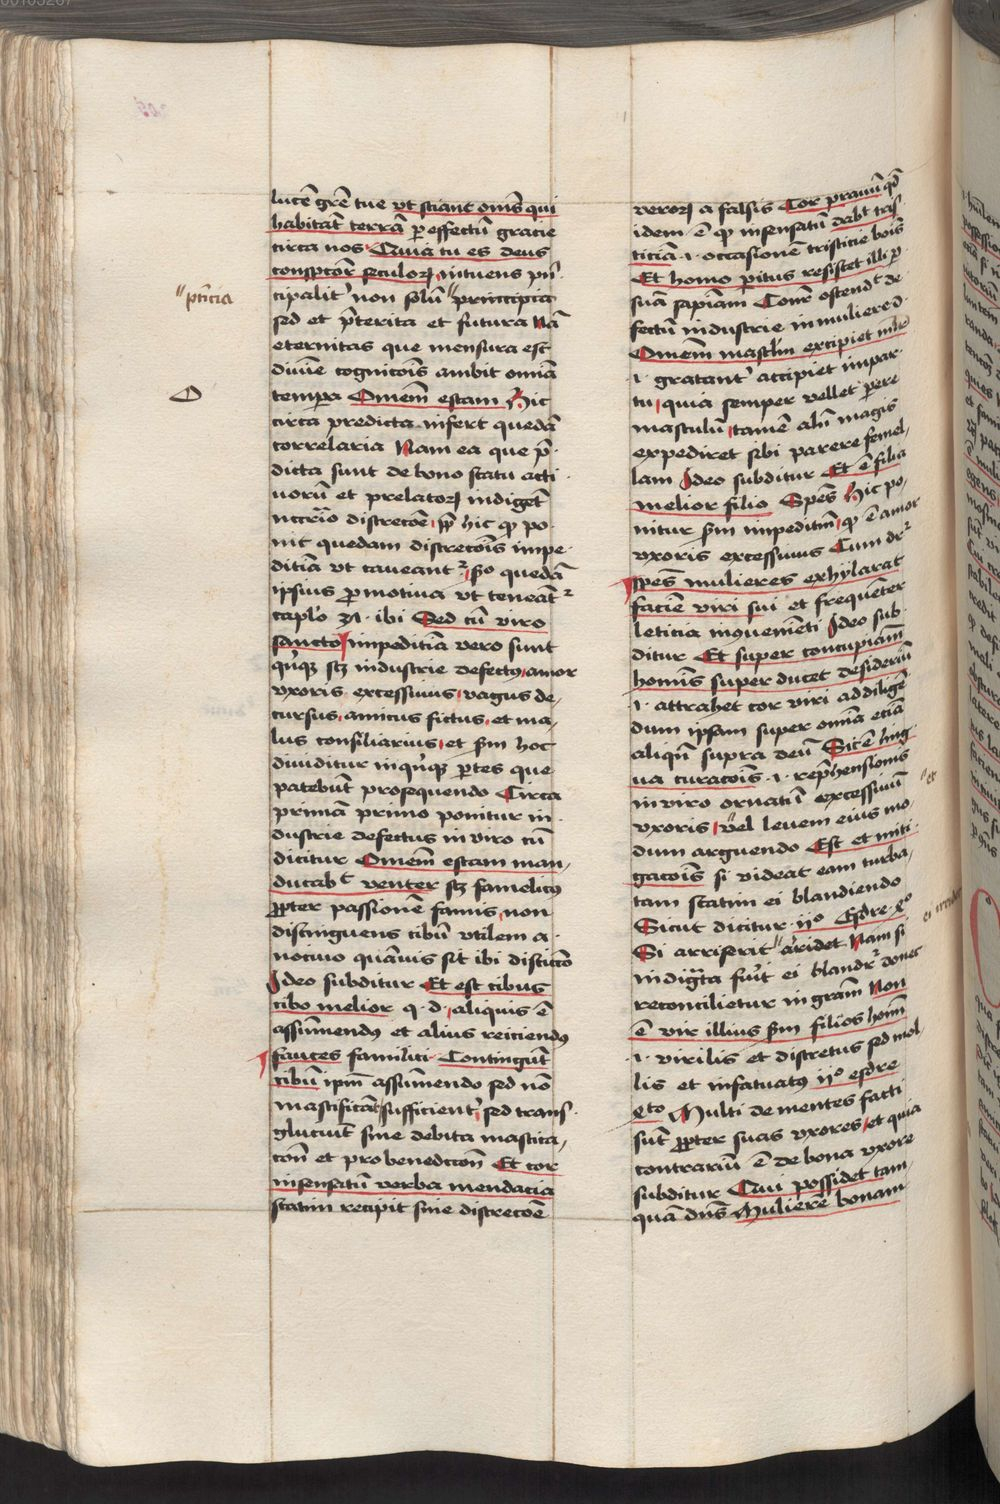 lucē gr̄e tue vt sciant om̄s qui
habitāt terrā ꝑ effectū gracie
circa nos Quia tu es deus
conspcōr seculoꝝ intuens pn̄
cipalit̉ non solū principia
sed et p̄terita et futura Nā
eternitas que mensura est
diuīe cognicōis ambit omīa
tempora Omēm escam Hic
circa predicta infert quedā
correlaria Nam ea que p̄
dicta sunt de bono statu acti
uorū et prelatoꝝ indigēt
nccr̄io discrecōe ꝓpter hic qꝫ po
nit quedam discrecōis impe
ditīa vt caueant᷑ 2º quedā
ipsius ꝓmotiua vt teneāt᷑
caplo 37 ibi Sed cū viro
sancto impeditīa vero sunt
qīqꝫ scꝫ industrie defectꝰ amor
vxoris excessiuus vagus de
cursus amicus fictus et ma
lus consiliarius et sm̄ hoc
diuiditur in qīqꝫ ꝑtes que
patebūt prosequendo Circa
primā primo ponitur in
dustrie defectus in viro cū
dicitur Omēm escam man
ducabᵗ venter scꝫ famelicꝰ
ꝓpter passionē famis non
distinguens cibū vtilem a
nociuo quāuis sit ibi distīctō
Ideo subditur Et est cibus
cibo melior q. d. aliquis ē
assūmendꝰ et alius reiciendꝰ
fauces familici Contingūt
cibū ipm̄ assūmendo sed nō
masticāt sufficient̉ sed trans
glutiūt sine debita mastica
cōn et pro benedccōn̄ Et cor
insensatū verba mendacia
statim recipit sine discrecōe
pn̄cia
D
veroꝝ a falsis Cor prauū qd̄
idem ē qꝫ insensatū dabᵗ tris
ticiā .i. occasionē tristicie boīs
Et homo ꝑitus resistet illi ꝑ
suā sapīam Conr̄ ostendᵗ de
fectū industrie in muliere d.
Omēm mascl̄m excipiet mlr̄
.i. gratant̉ accipiet in par
tu quia semper vellet ꝑere
masculū tamē alī magis
expediret sibi parere femel
lam Ideo subditur Et ē filia
melior filio Spēs Hic po
nitur sm̄ impeditm̄ qꝫ ē amor
vxoris excessiuus Cum dr᷑
spēs mulieres exhylarat
faciē viri sui et frequēter
leticia inquenīeti Ideo sub
ditur Et super concupīam
homīs super ducet desideriū
.i. attrahet cor viri ad diligē
dum ipsam super omīa etiā
aliqn̄ supra deū Sic ē ling
ua curacōis .i. repr̄hensionis
in viro ornatū excessiuū
vxoris vel leuem eius mo
dum arguendo Est et miti
gacōis si videat eam turba
tam statim ei blandiendo
Sicut dicitur ijº Esdre xº
Si arriserit arridet Nam si
indigta fūit ei blandr᷑ donec
reconcilietur in gram̄ Non
ē vir illius sm̄ filios homī
.i. virilis et discretus sed mol
lis et infatuatꝰ ijº esdre
eto Multi dementes facti
sūt ꝓpter suas vxores et quia
contrariū ē de bona vxore
subditur Qui possidet tam
quā dn̄s Mulierē bonam
et